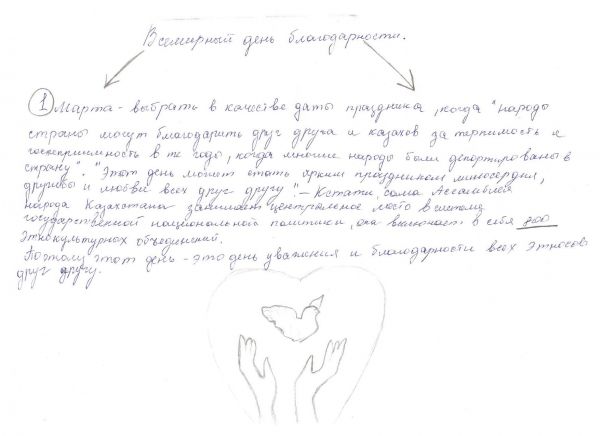 Всемирный день благодарности.
1 Марта - выбрать в качестве даты праздника, когда "народы
страны могут благодарить друг друга и казахов за терпимость и
гостеприимность в те годы, когда многие народы были депортированы в
страну". "Этот день может стать ярким праздником милосердия,
дружбы и любви всех друг другу" - Кстати, сама Ассамблея
народа Казахстана занимает центральное место в системе
государственной национальной политики, она включает в себя 800
этнокультурных объединений.
Поэтому этот день - это день уважения и благодарности всех этносов
друг другу.